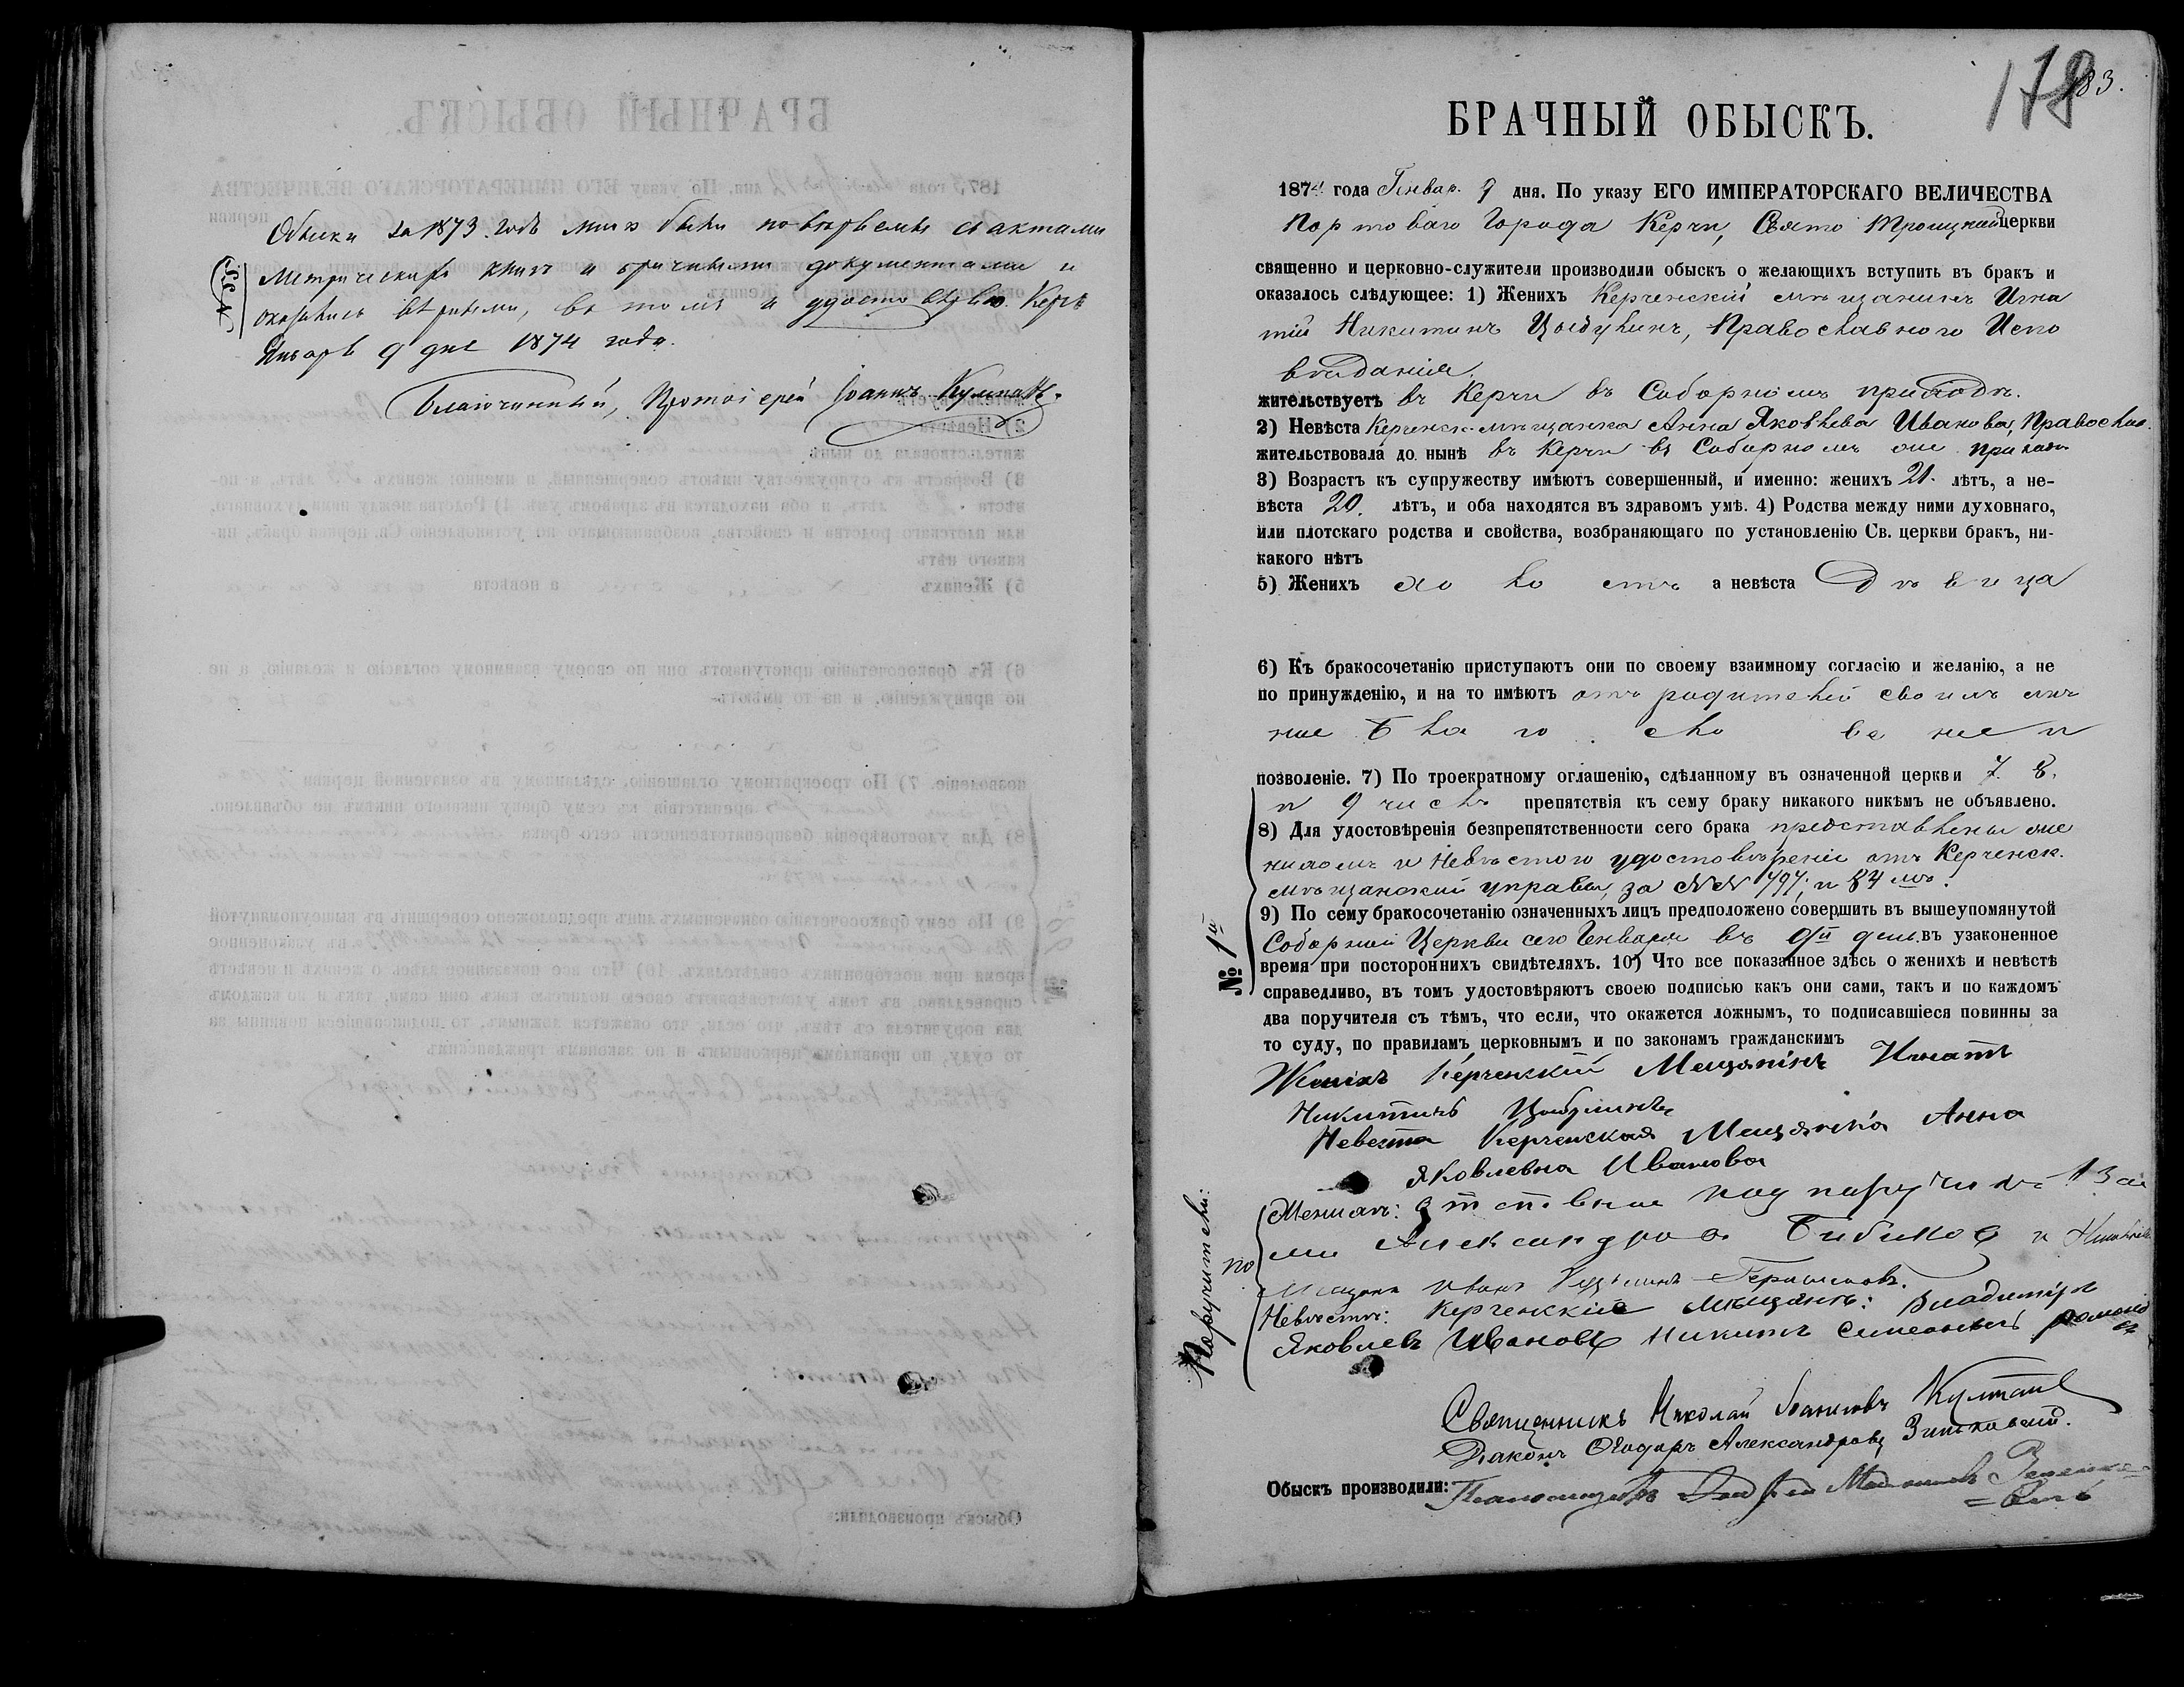 Обыски за 1873. годъ мною были повѣряемы съ актами
Метрическихъ книгъ и
документами и
оказались вѣрными, въ томъ и удостовѣряю. Керчь
Январь 9 дня 1874 года.
Благочинный, Протоіерей Іоаннъ
178
183.
БРАЧНЫЙ ОБЫСКЪ.
1874 года Генвар. 9 дня. По указу ЕГО ИМПЕРАТОРСКАГО ВЕЛИЧЕСТВА
Портоваго Города Керчи, Свято Троицкой церкви
священно и церковно-служители производили обыскъ о желающихъ вступить въ бракъ и
оказалось слѣдующее: 1) Женихъ Керченскій мѣщанинъ Игна
тій Никитинъ Цыбулинъ, Православнаго Испо
вѣданія.
жительствуетъ въ Керчи въ Соборномъ приходѣ.
2) Невѣста Керченск. мѣщанка Анна Яковлева Иванова, Православ.
жительствовала до нынѣ въ Керчи въ Соборномъ же приходѣ
3) Возрастъ къ супружеству имѣютъ совершенный, и именно: женихъ 21. лѣтъ, а не-
вѣста 20. лѣтъ, и оба находятся въ здравомъ умѣ. 4) Родства между ними духовнаго,
или плотскаго родства и свойства, возбраняющаго по установленію Св. церкви бракъ, ни-
какого нѣтъ
5) Женихъ холостъ а невѣста Дѣвица
6) Къ бракосочетанію приступаютъ они по своему взаимному согласію и желанію, а не
по принужденію, и на то имѣютъ отъ родителей своихъ
благословеніе и
позволеніе. 7) По троекратному оглашенію, сдѣланному въ означенной церкви 7. 8.
и 9 числъ препятствія къ сему браку никакого никѣмъ не объявлено.
8) Для удостовѣренія безпрепятственности сего брака представлены же
нихомъ и Невѣстою удостовѣреніи отъ Керченск.
мѣщанской управы, за №№ 797, и 84 мъ.
№ 1й
9) По сему бракосочетанію означенныхъ лицъ предположено совершить въ вышеупомянутой
Соборной Церкви сего Генваря въ 9й день въ узаконенное
время при постороннихъ свидѣтеляхъ. 10) Что все показанное здѣсь о женихѣ и невѣстѣ
справедливо, въ томъ удостовѣряютъ своею подписью какъ они сами, такъ и по каждомъ
два поручителя съ тѣмъ, что если, что окажется ложнымъ, то подписавшіеся повинны за
то суду, по правиламъ церковнымъ и по законамъ гражданскимъ
Женихъ Керченскій Мещанинъ Игнатъ
Никитинъ Цыбулинъ
Невеста Керченская Мещанка Анна
Яковлевна Иванова
Поручители:
по
Женихѣ: отставной
Александров Бибиков и
Иванъ
Невѣстѣ: Керченскіе мѣщане: Владиміръ
Яковлевъ Ивановъ Никита
Священникъ Николай Іоанновъ
Діаконъ Ѳеодоръ Александровъ Зиньковскій.
Обыскъ производили: